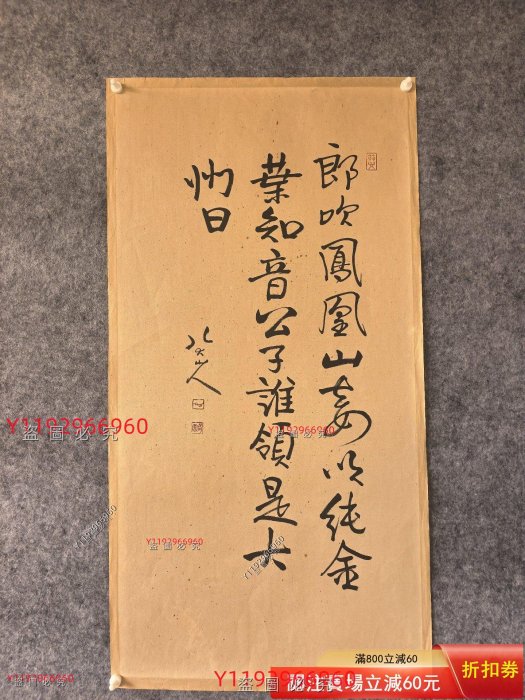 郎吹鳳凰山妾以純金
葉知音公子誰領是大
州日
八大山人
Y1192966960
盜圖必究
Y1192966960
盜圖必究
Y1192966960
盜圖必究
Y1192966960
Y1192966960
盜圖必究
Y1192966960
盜圖必究
滿800立減60
賣場立減60元
折扣券